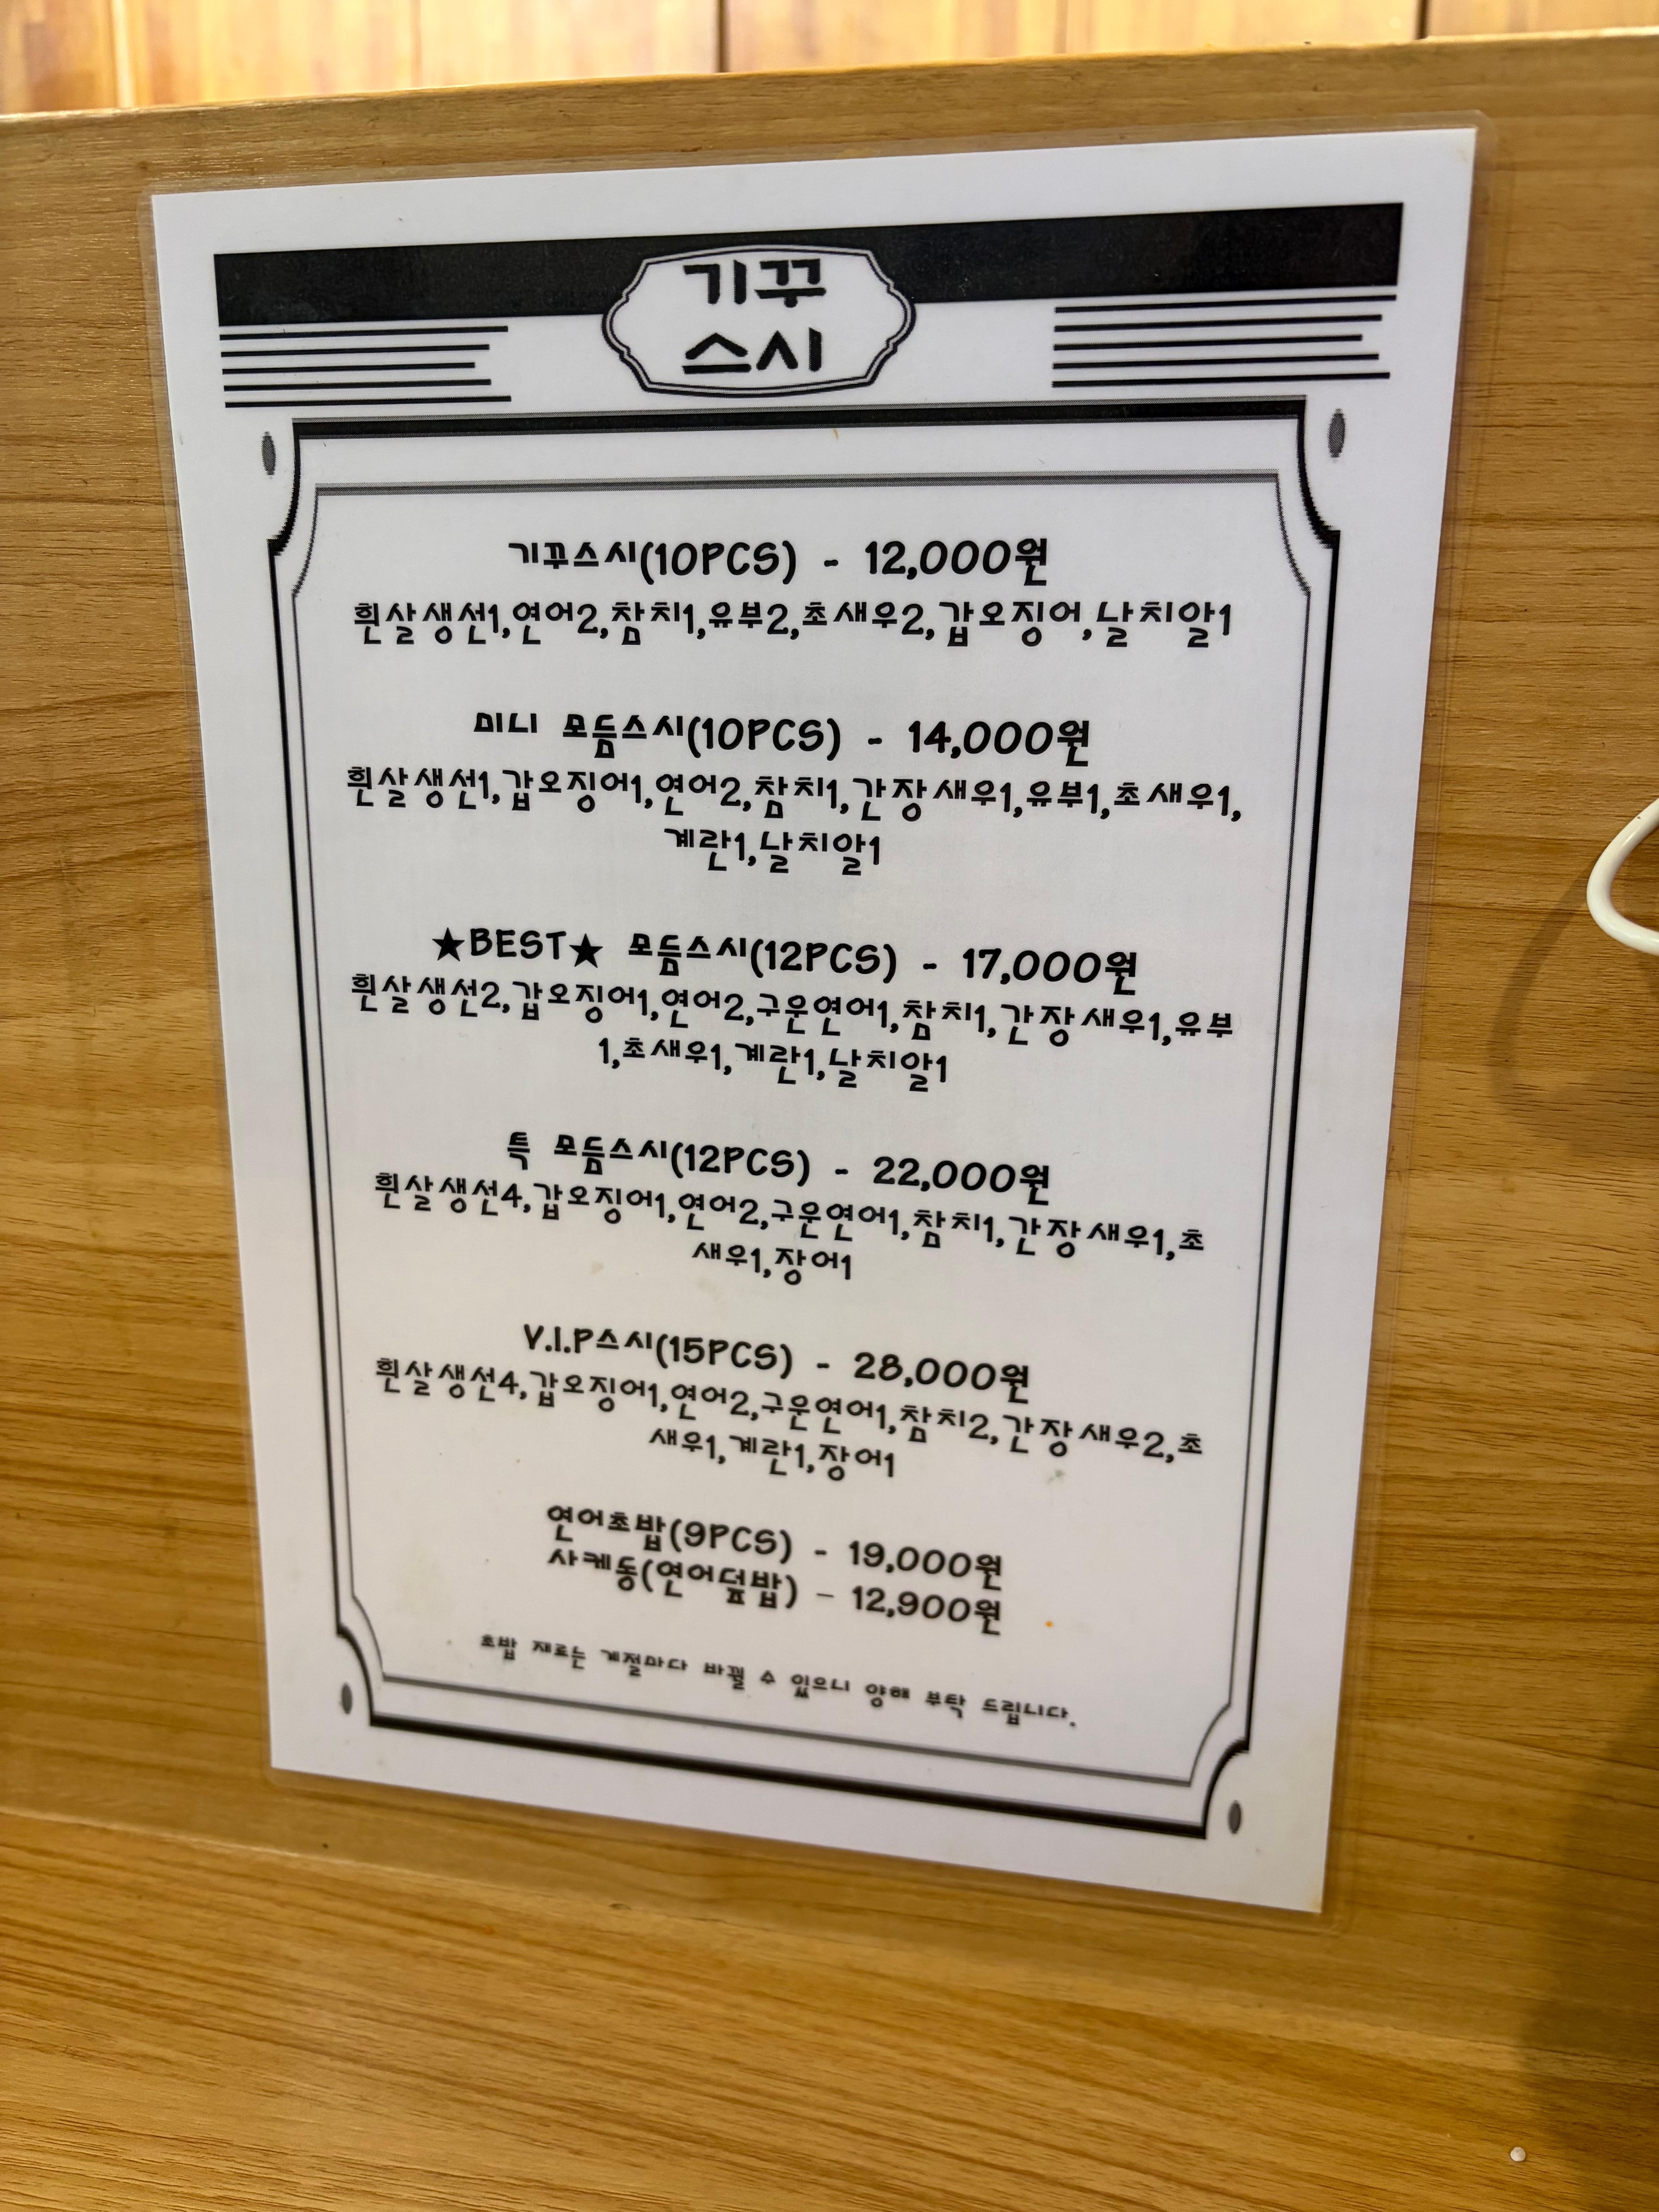 기꾸
스시
기꾸스시(10PCS) - 12,000원
흰살생선1,연어2,참치1,유부2,초새우2,갑오징어,날치알1
미니 모듬스시(10PCS) - 14,000원
흰살생선1,갑오징어1,연어2,참치1,간장새우1,유부1,초새우1,
계란1,날치알1
★BEST★ 모듬스시(12PCS) - 17,000원
흰살생선2,갑오징어1,연어2,구운연어1,참치1,간장새우1,유부
1,초새우1,계란1,날치알1
특 모듬스시(12PCS) - 22,000원
흰살생선4,갑오징어1,연어2,구운연어1,참치1,간장새우1,초
새우1,장어1
V.I.P스시(15PCS) - 28,000원
흰살생선4,갑오징어1,연어2,구운연어1,참치2,간장새우2,초
새우1,계란1,장어1
연어초밥(9PCS) - 19,000원
사케동(연어덮밥) - 12,900원
초밥 재료는 계절마다 바뀔 수 있으니 양해 부탁 드립니다.